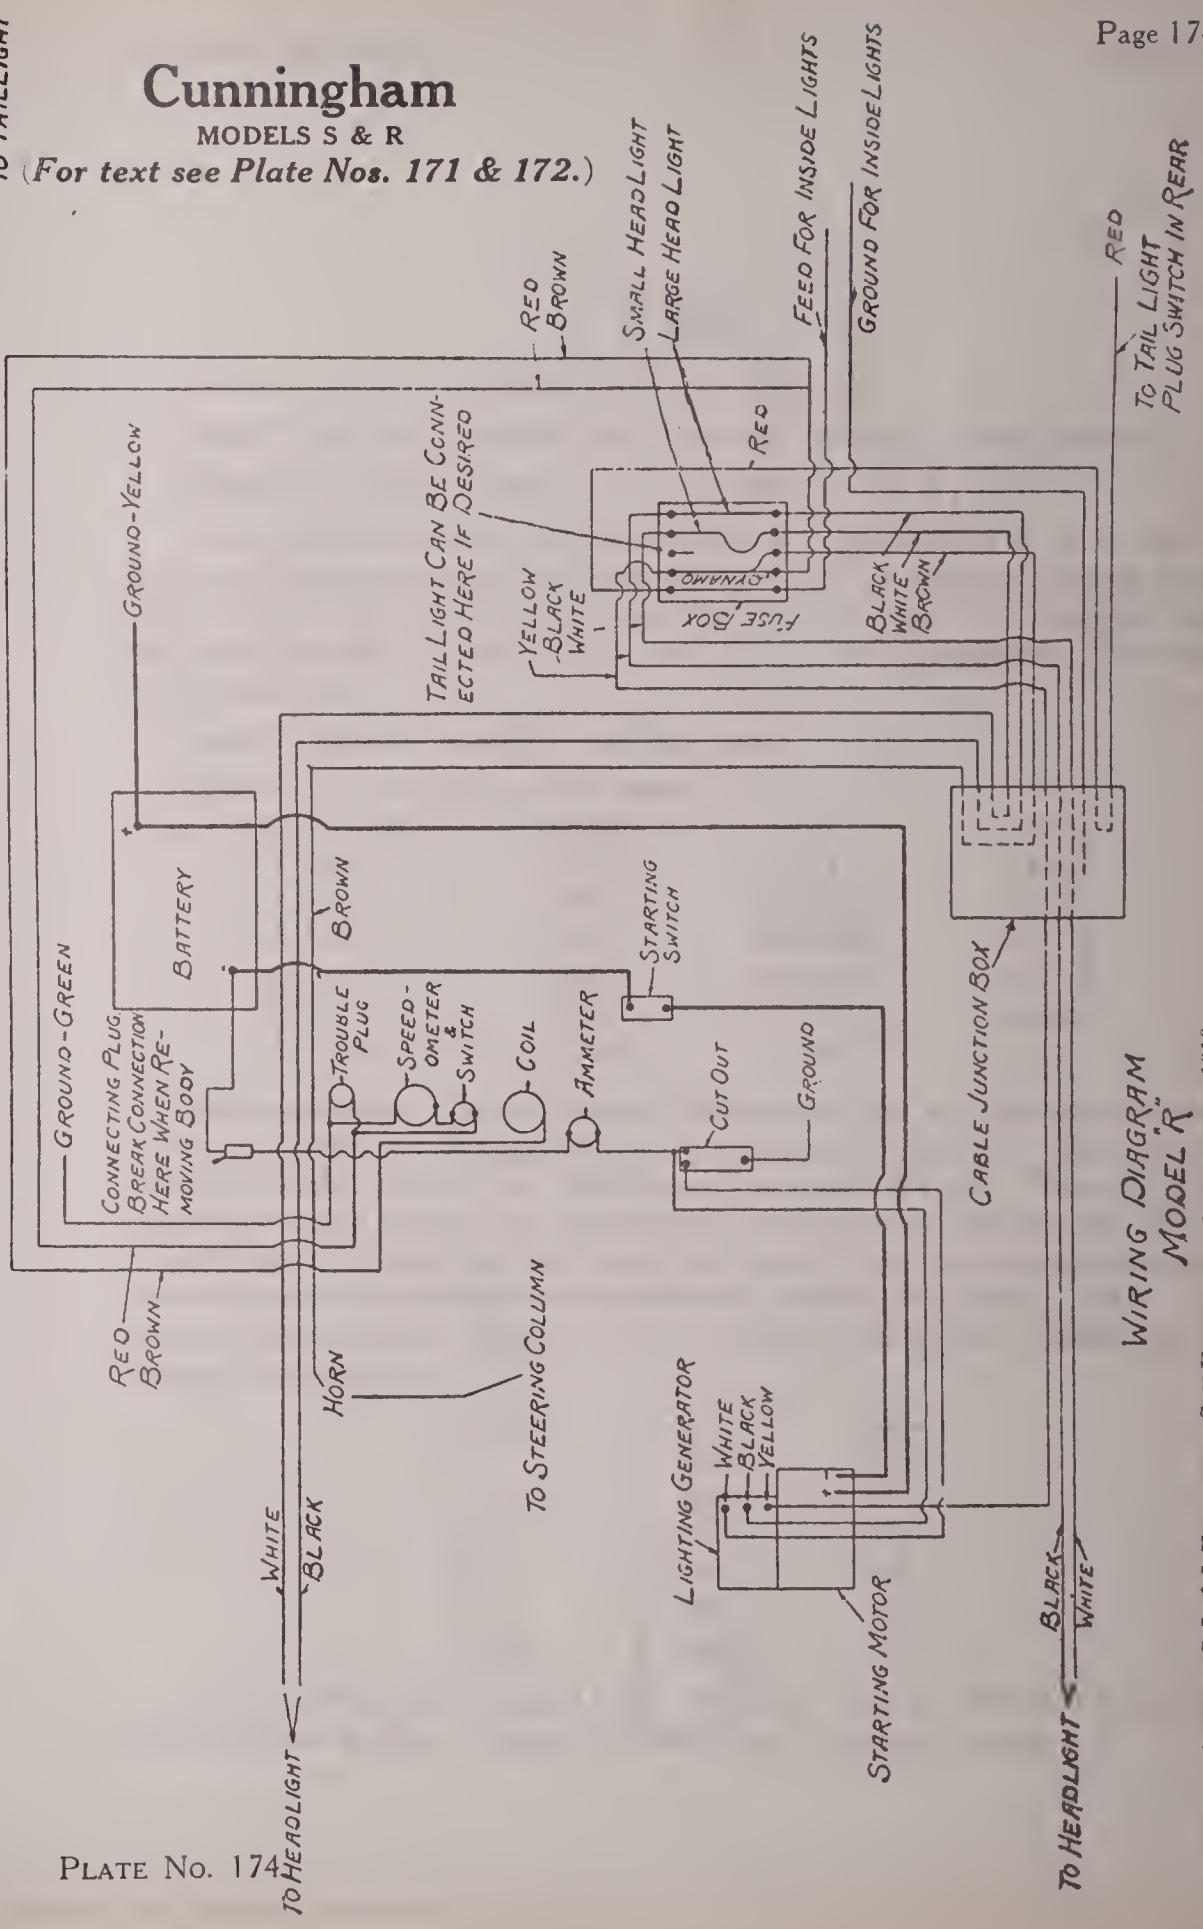 Page 17
TO TAILLIGHT
Cunningham
MODELS S & R
(For text see Plate Nos. 171 & 172.)
GROUND-YELLOW
RED
BROWN
SMALL HEAD LIGHT
LARGE HEAD LIGHT
FEED FOR INSIDE LIGHTS
GROUND FOR INSIDE LIGHTS
RED
TO TAIL LIGHT
PLUG SWITCH IN REAR
TAIL LIGHT CAN BE CONN-
ECTED HERE IF DESIRED
RED
YELLOW
BLACK
WHITE
DYNAMO
FUSE BOX
BLACK
WHITE
BROWN
+
BATTERY
-
GROUND-GREEN
CONNECTING PLUG.
BREAK CONNECTION
HERE WHEN RE-
MOVING BODY
BROWN
TROUBLE
PLUG
SPEED-
OMETER
&
SWITCH
COIL
AMMETER
STARTING
SWITCH
CUT OUT
GROUND
CABLE JUNCTION BOX
RED
BROWN
HORN
TO STEERING COLUMN
WHITE
BLACK
LIGHTING GENERATOR
WHITE
BLACK
YELLOW
+ -
STARTING MOTOR
BLACK
WHITE
TO HEADLIGHT
TO HEADLIGHT
WIRING DIAGRAM
MODEL "R"
PLATE NO. 174